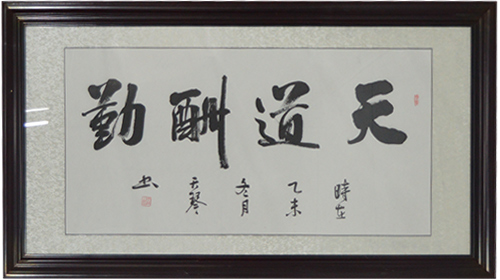 天道酬勤
時在
乙未
冬月
天琴
书